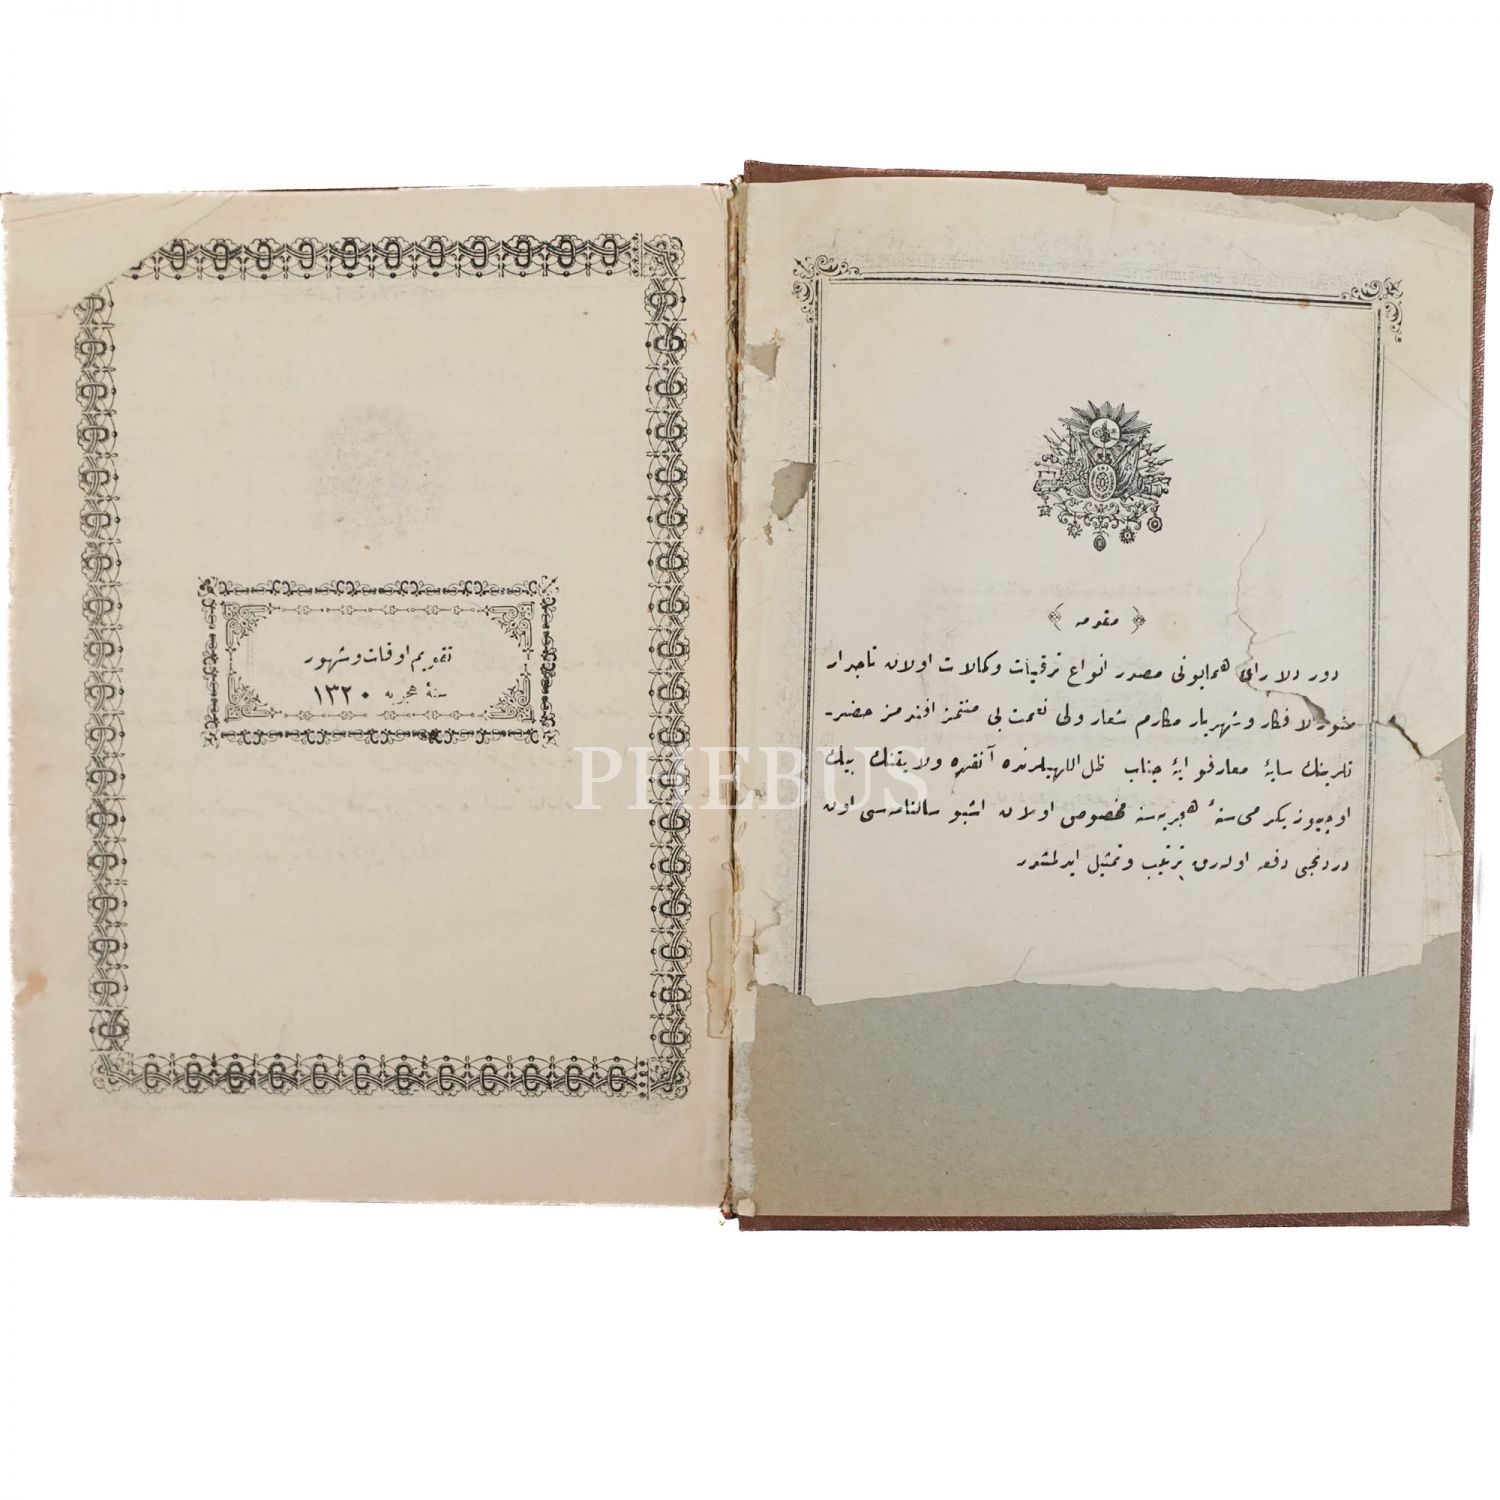 ﴿ مقدمه ﴾
دور دلارای همایونی مصدر انواع ترقیات وکمالات اولان تاجدار
منور الافکار وشهریار مکارم شعار ولی نعمت بی منتمز افندمز حضر-
تلرینك سایهٔ معارفوایهٔ جناب ظل اللهیلرنده آنقره ولایتنك بیك
اوچیوز یکرمی سنهٔ هجریه سنه مخصوص اولان اشبو سالنامه سی اون
دردنجی دفعه اوله رق ترتیب وتمثیل ایدلمشدر
تقویم اوقات وشهور
سنهٔ هجریه ١٣٢٠
PHEBUS